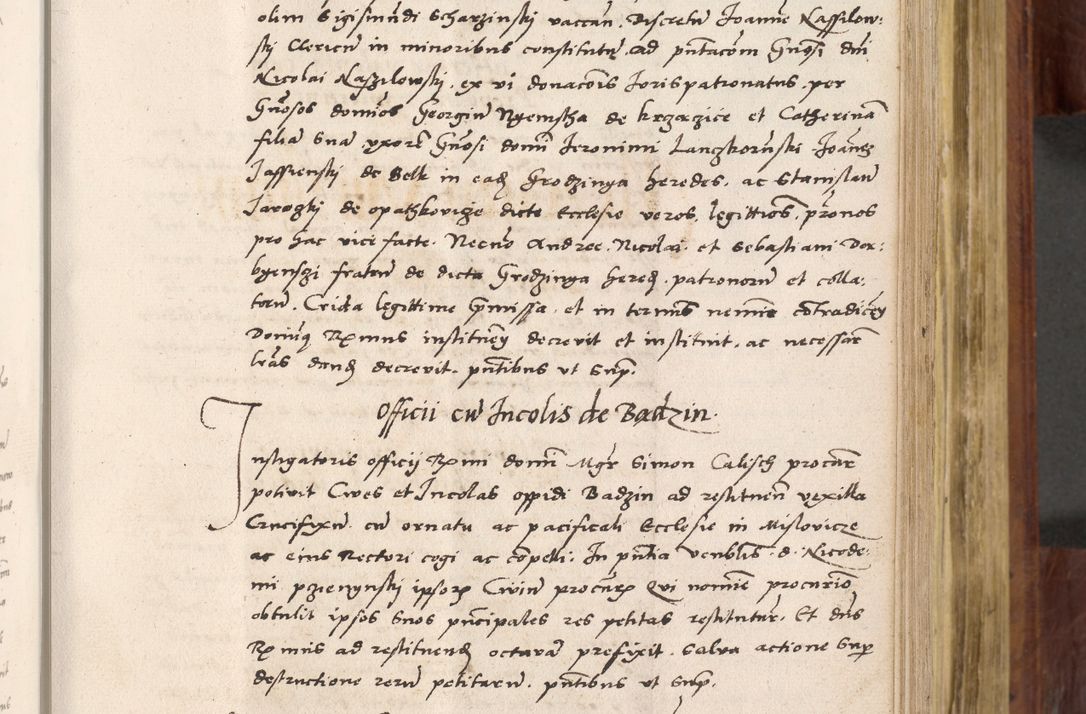 olim Sigismudi Scharzinski vaccan. Discretu Joanne Nassilow:
ski Clericu in minoribus constitutu, ad pntacom Gnosi dni
Nicolai Naszilowski, ex vi donacois Jurispatronatus, per
Gnosos dominos Georgiu Nyemstha de krzczice et Catherina
filia sua, uxore Gnosi domi Jeronimi Lanczkorunski Joanes
Jassienski de Belk in ead Grodzinya heredes, ac Stanislau
Jarozki de opathkovicze dicte Ecclesie veros, legittios, pronos
pro hac vice facte. Necno Andree, Nicolai, et Sebastiani Dor:
byenszi fratru de dicta Grodzinya hered, patronoru et colla:
toru. Crida legittime premissa, et in termis nemine cotradicen
Dominus Rxmus instituen decrevit et instituit, ac necessar
lras dand decrevit. pntibus ut sup.
Officii cu Incolis de Badzin.
Instigatoris officij Rxmi domi Mgr Simon Calisch procur
potivit Cives et Incolas oppidi Badzin ad restituen vexilla
Crucifixu cu ornatu ac pacificali Ecclesie in Mislovicze
ac eius Rectori cogi ac compelli. In pntia venblis d. Nicode:
mi pzienynski ipsorum Civiu procuris Qui nomie procurio
obtulit ipsos suos principales res petitas restitutur. Et dns
Rxmus ad restituend octava prefixit. Salva actione sup
destructione reru petitaru. pntibus ut sup.